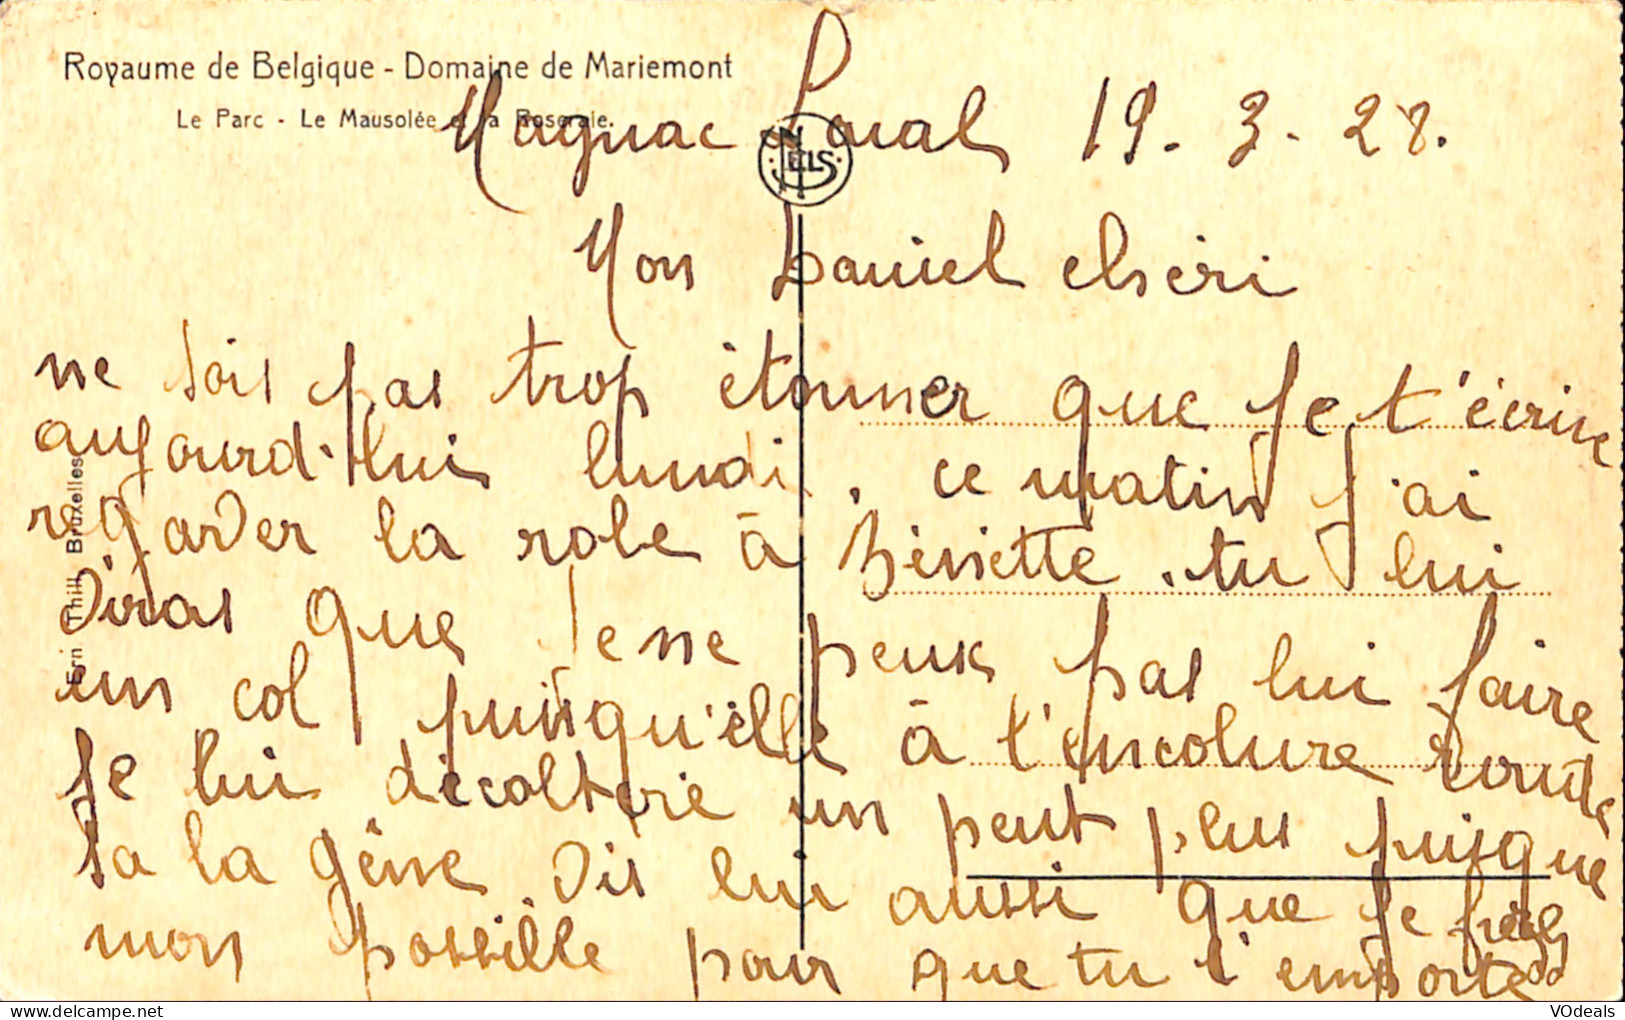 Royaume de Belgique - Domaine de Mariemont
Le Parc - Le Mausolée et la Roseraie.
NELS
Ern. Thill, Bruxelles
Magnac Laval 19. 3. 28.
Mon Daniel chéri
ne sois pas trop étonner que je t'écrive
aujourd'hui lundi, ce matin j'ai
regarder la robe à Zézette. tu lui
diras que je ne peux pas lui faire
un col puisqu'elle à l'encolure ronde
je lui décolterè un peut plus puisque
sa la gêne. Dis lui aussi que je ferès
mon possible pour que tu l'emporte
VOdeals